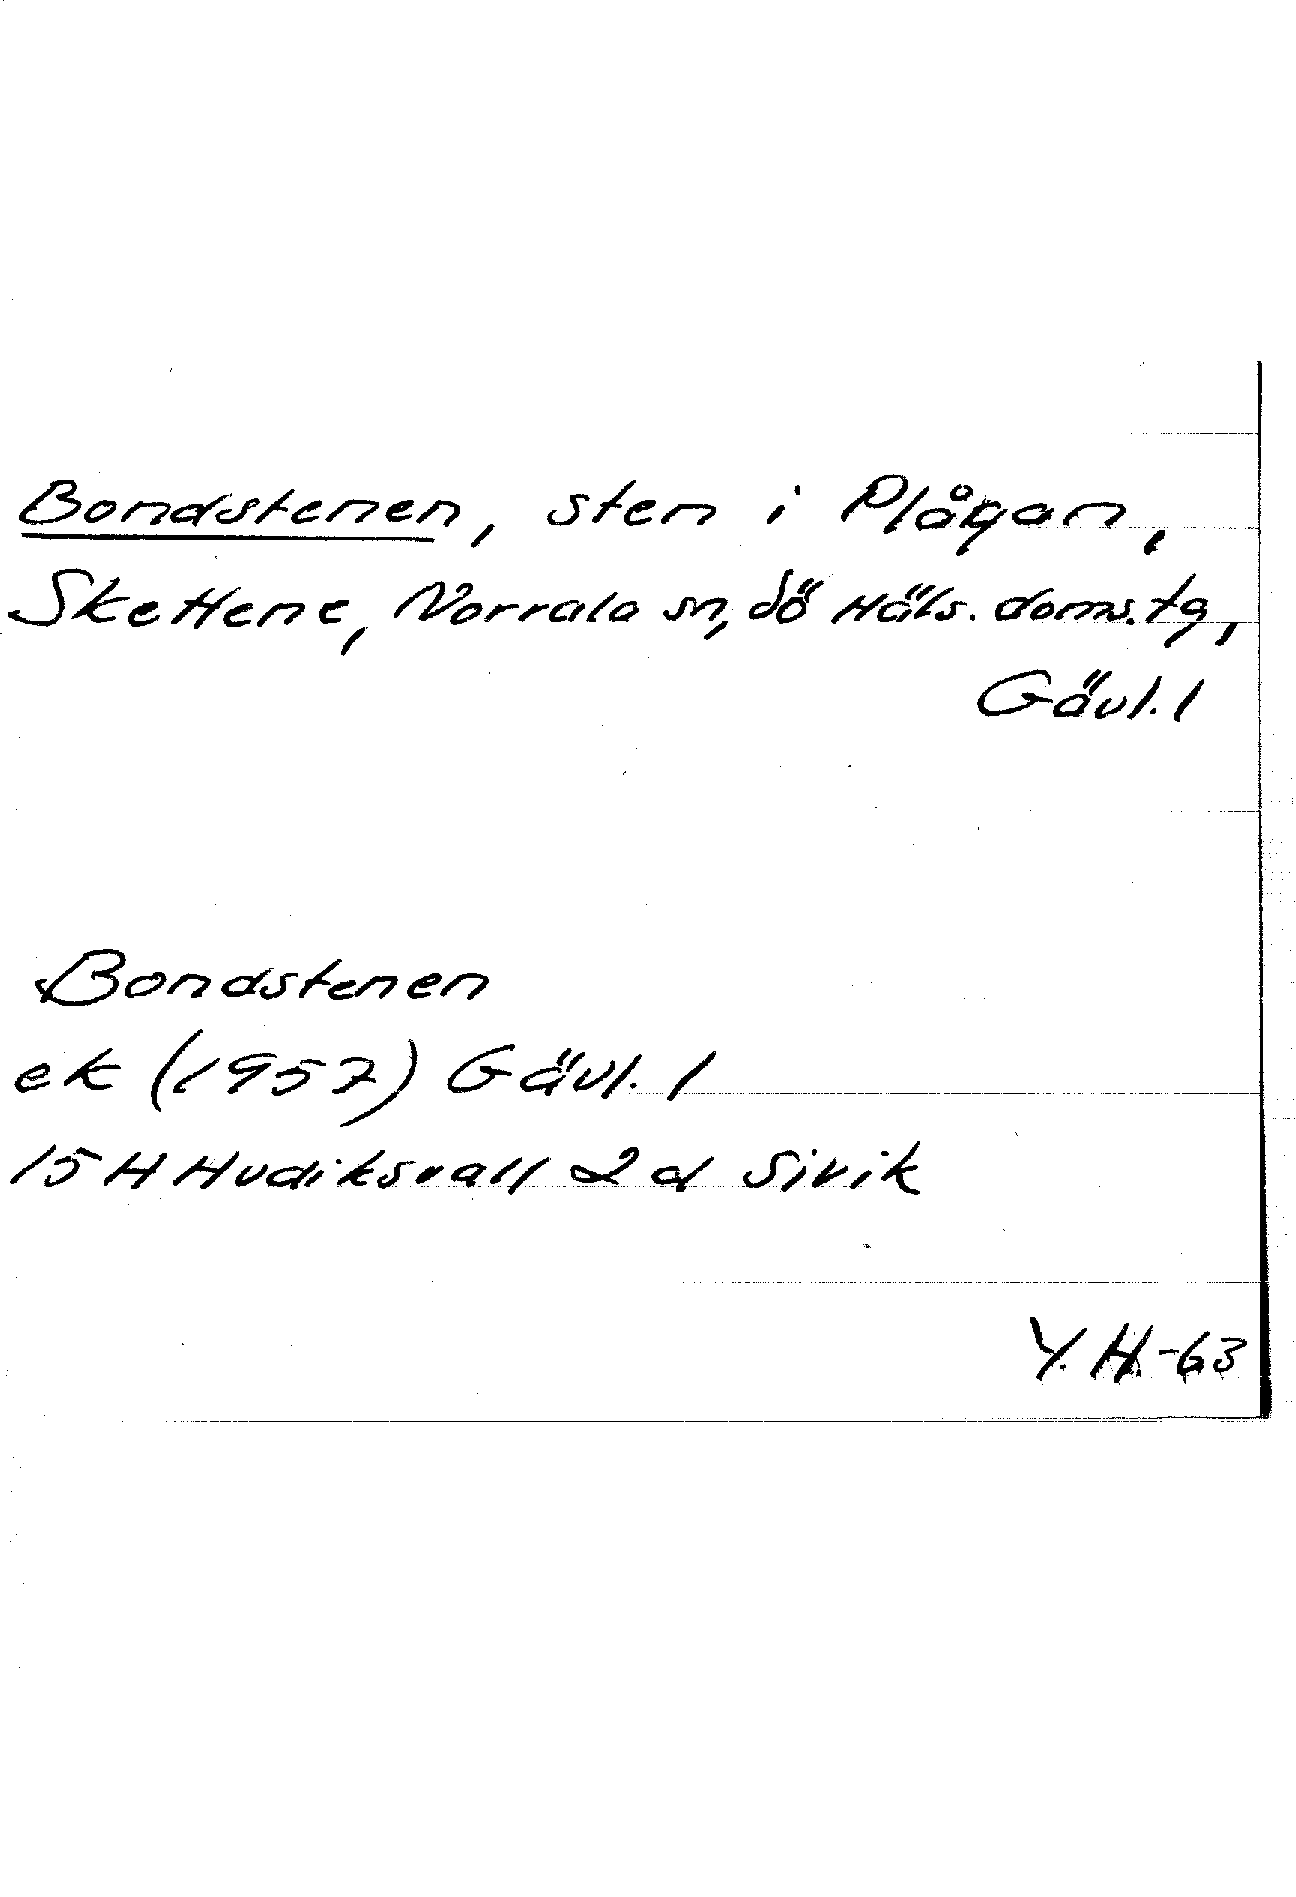 Bondstenen, sten i Plågan,
Skettene, Norrala sn, Sö Häls. doms.tg,
Gävl. l
Bondstenen
ek (1957) Gävl. l
15 H Hudiksvall 2 d Sivik
Y. H.-63